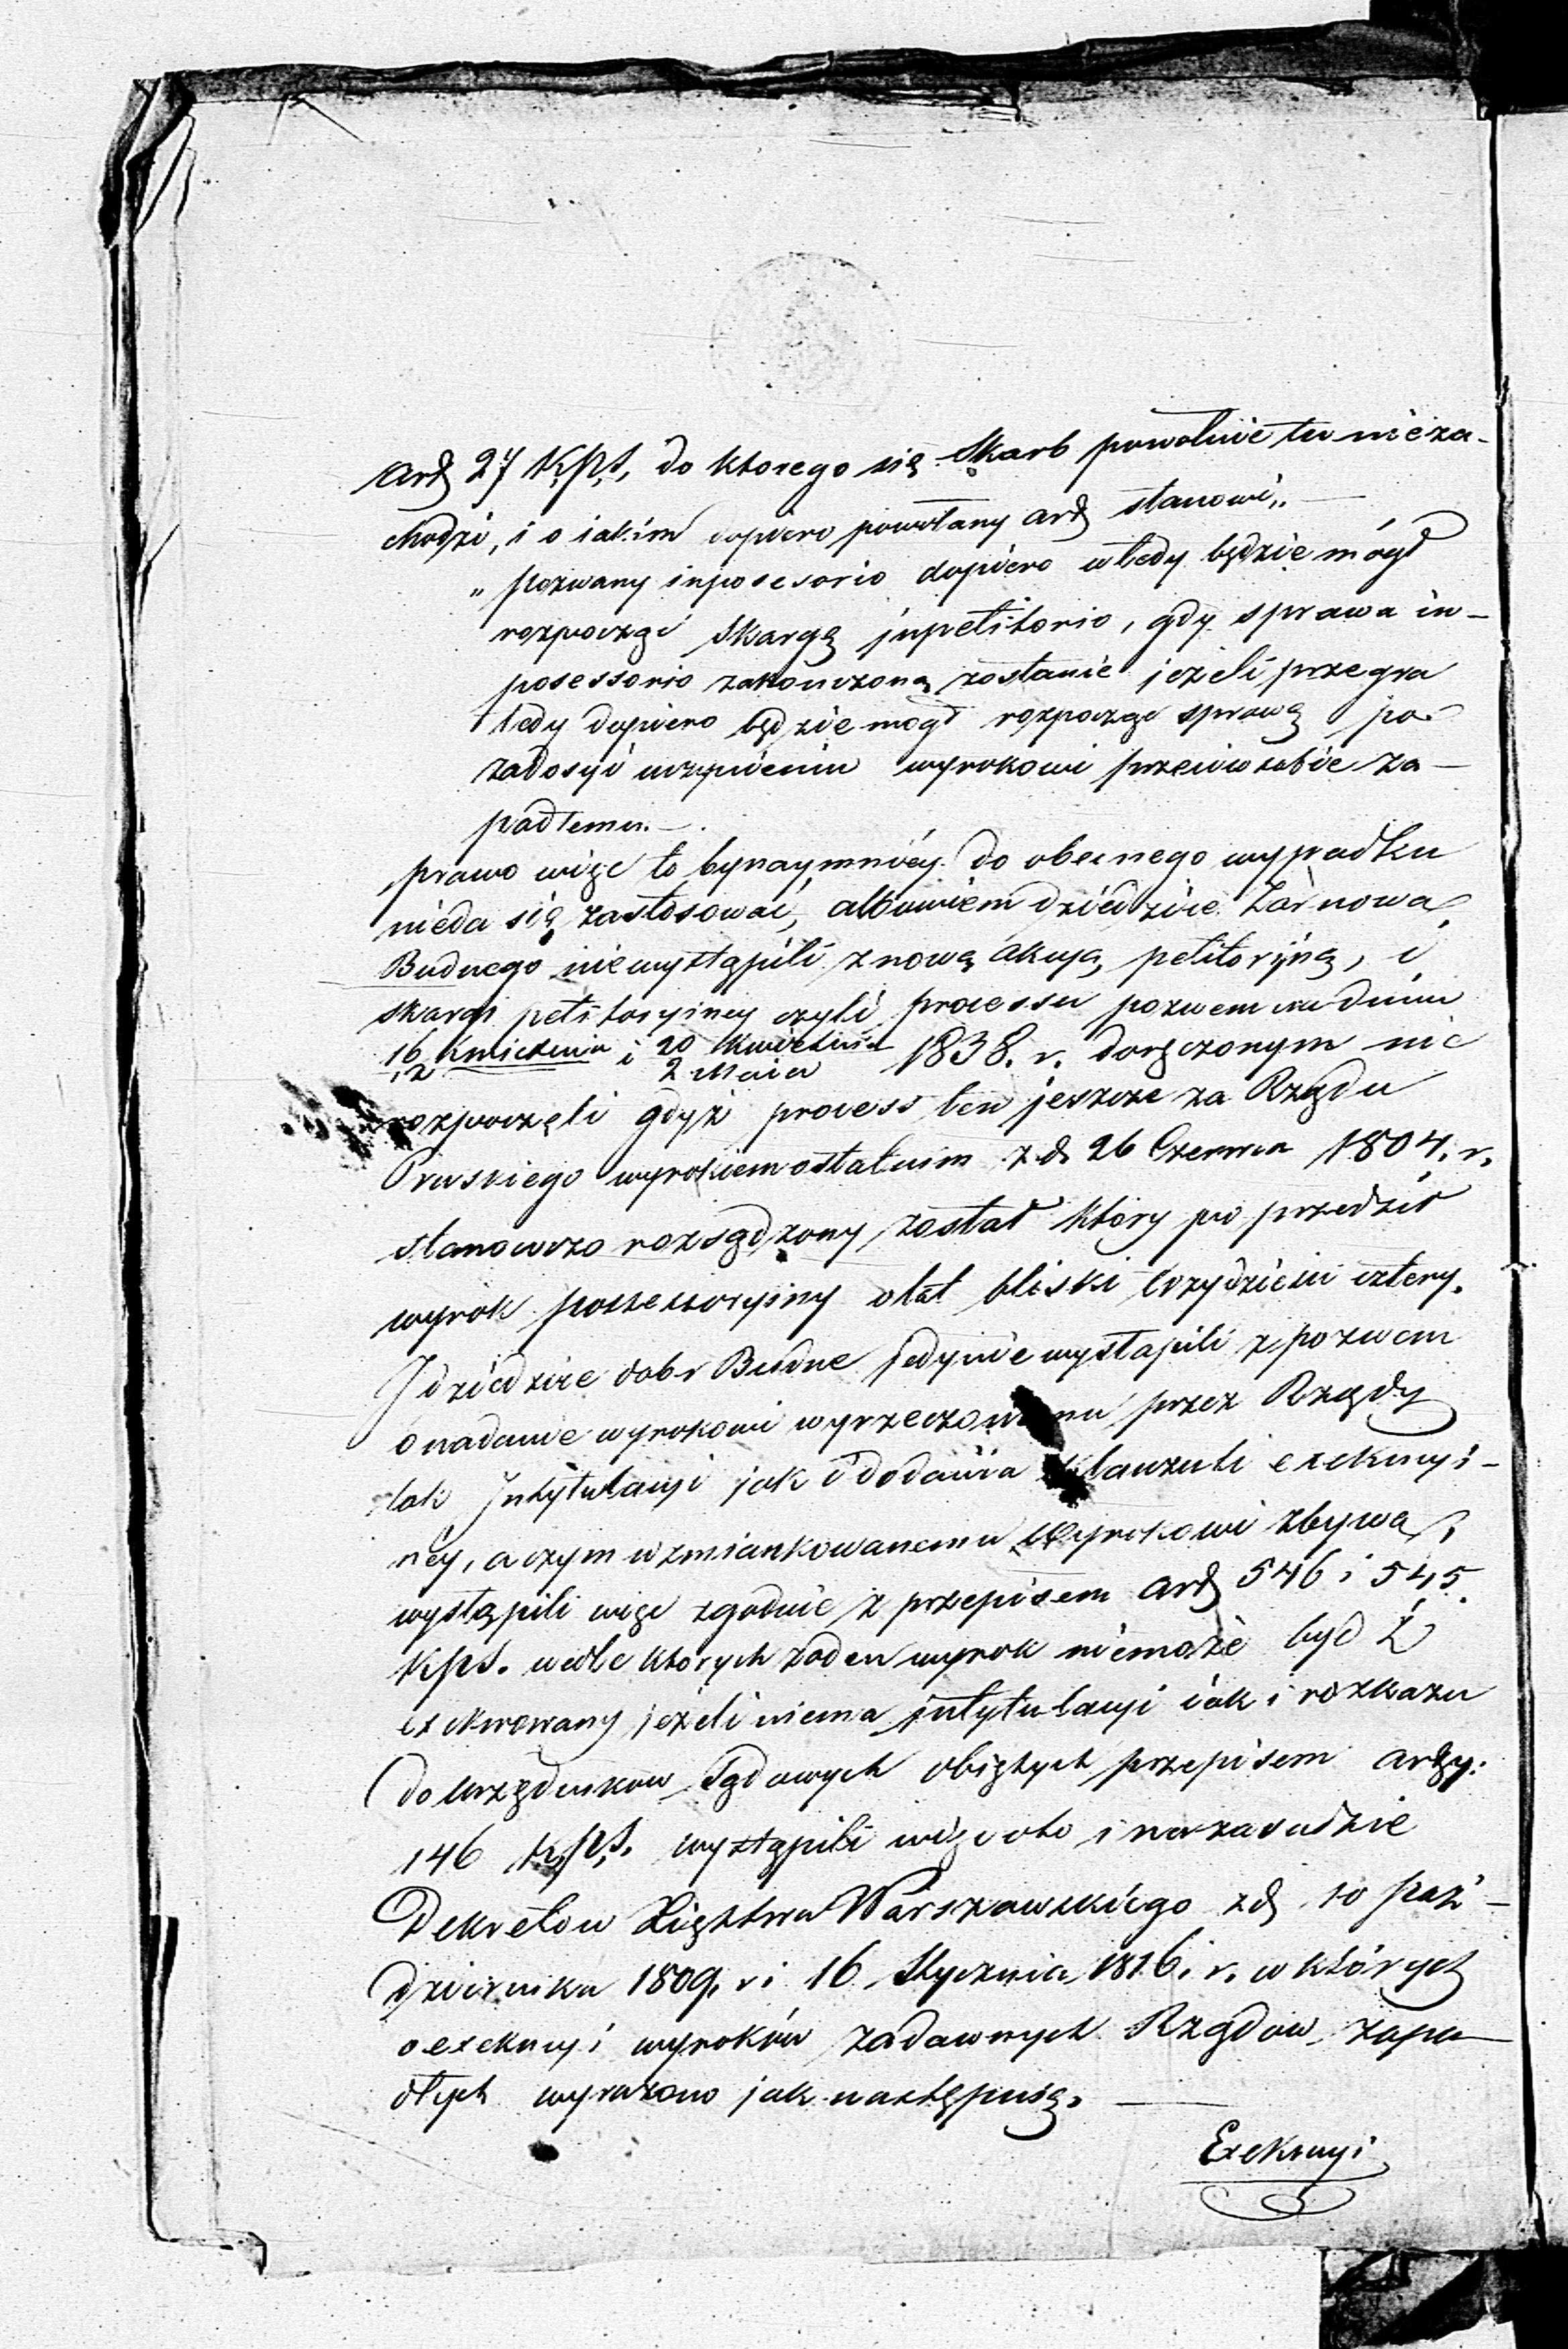 art 27 K.p.s. do ktorego się Skarb powołuie tu nieza-
chodzi, i o iakim dopiero powołany art stanowi„ —
„ pozwany inposesorio dopiero wtedy będzie mógł
rozpocząć skargę inpetitorio, gdy sprawa in-
posessorio zakonczoną zostanie jeżeli przegra
tedy dopiero będzie mogł rozpocząć sprawę po
zadosyć uczynieniu wyrokowi przeciw sobie za-
padłemu. —
prawo więc to bynaymniéy do obecnego wypadku
nieda się zastosować, albowiem dziedzice Żarnowa
Budnego niewystąpili z nową akcyą petitoryiną, i
skargi petitoryiney czyli processu pozwem w dniu
16 Kwietnia i 20 Kwietnia 1838. r. doręczonym nie
12 2 Maia
rozpoczęli gdyż process ten jeszcze za Rządu
Pruskiego wyrokiem ostatnim z d. 26 Czerwca 1804. r.
stanowczo rozsądzony został który poprzedził
wyrok possessoryiny o lat bliski trzydzieści cztery.
I dziedzice dobr Budne jedynie wystąpili z pozwem
o nadanie wyrokowi wyrzeczonemu przez Rządy
tak Intytulacyi jak i dodania klauzuli exekucyi-
néy, a czym wzmiankowanemu wyrokowi zbywa,
wystąpili więc zgodnie z przepisem art 546 i 545
Kps. wedle ktorych żaden wyrok niemoże być
exekwowany jeżeli niema intytulacyi iak i rozkazu
do urzędnikow Sądowych obiętych przepisem arty:
146 K.p.s. wystąpili więc oto i na zasadzie
Dekretow Xięstwa Warszawskiego z d 10 paź-
dziernika 1809. r i 16 Stycznia 1816. r. w których
o exekucyi wyroków zadawnych Rządow zapa-
dłych wyrażono jak następuię. —
Exekucyi